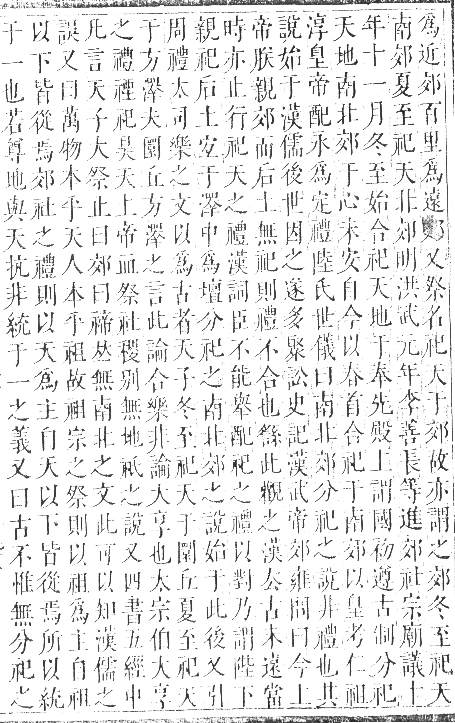 爲近郊百里爲遠郊又祭名祀天于郊故亦謂之郊冬至祀天
南郊夏至祀天北郊明洪武元年李善長等進郊社宗廟議十
年十一月冬至始合祀天地于奉先殿上謂國初遵古制分祀
天地南北郊于心未安自今以春首合祀于南郊以皇考仁祖
淳皇帝配永爲定禮陸氏世儀曰南北郊分祀之說非禮也其
說始于漢儒後世因之遂多聚訟史記漢武帝郊雍問曰今上
帝朕親郊而后土無祀則禮不合也繇此觀之漢去古未遠當
時亦止行祀天之禮漢詞臣不能舉配祀之禮以對乃謂陛下
親祀后土宜于澤中爲壇分祀之南北郊之說始于此後又引
周禮大司樂之文以爲古者天子冬至祀天于圜丘夏至祀天
于方澤夫圜丘方澤之言此論合樂非論大享也大宗伯大享
之禮禋祀昊天上帝血祭社稷别無地祇之說又四書五經中
凡言天子大祭止曰郊曰禘絲無南北之文此可以知漢儒之
誤又曰萬物本乎天人本乎祖故祖宗之祭則以祖爲主自祖
以下皆從焉郊社之禮則以天爲主自天以下皆從焉所以統
于一也若尊地與天抗非統于一之義又曰古不惟無分祀之